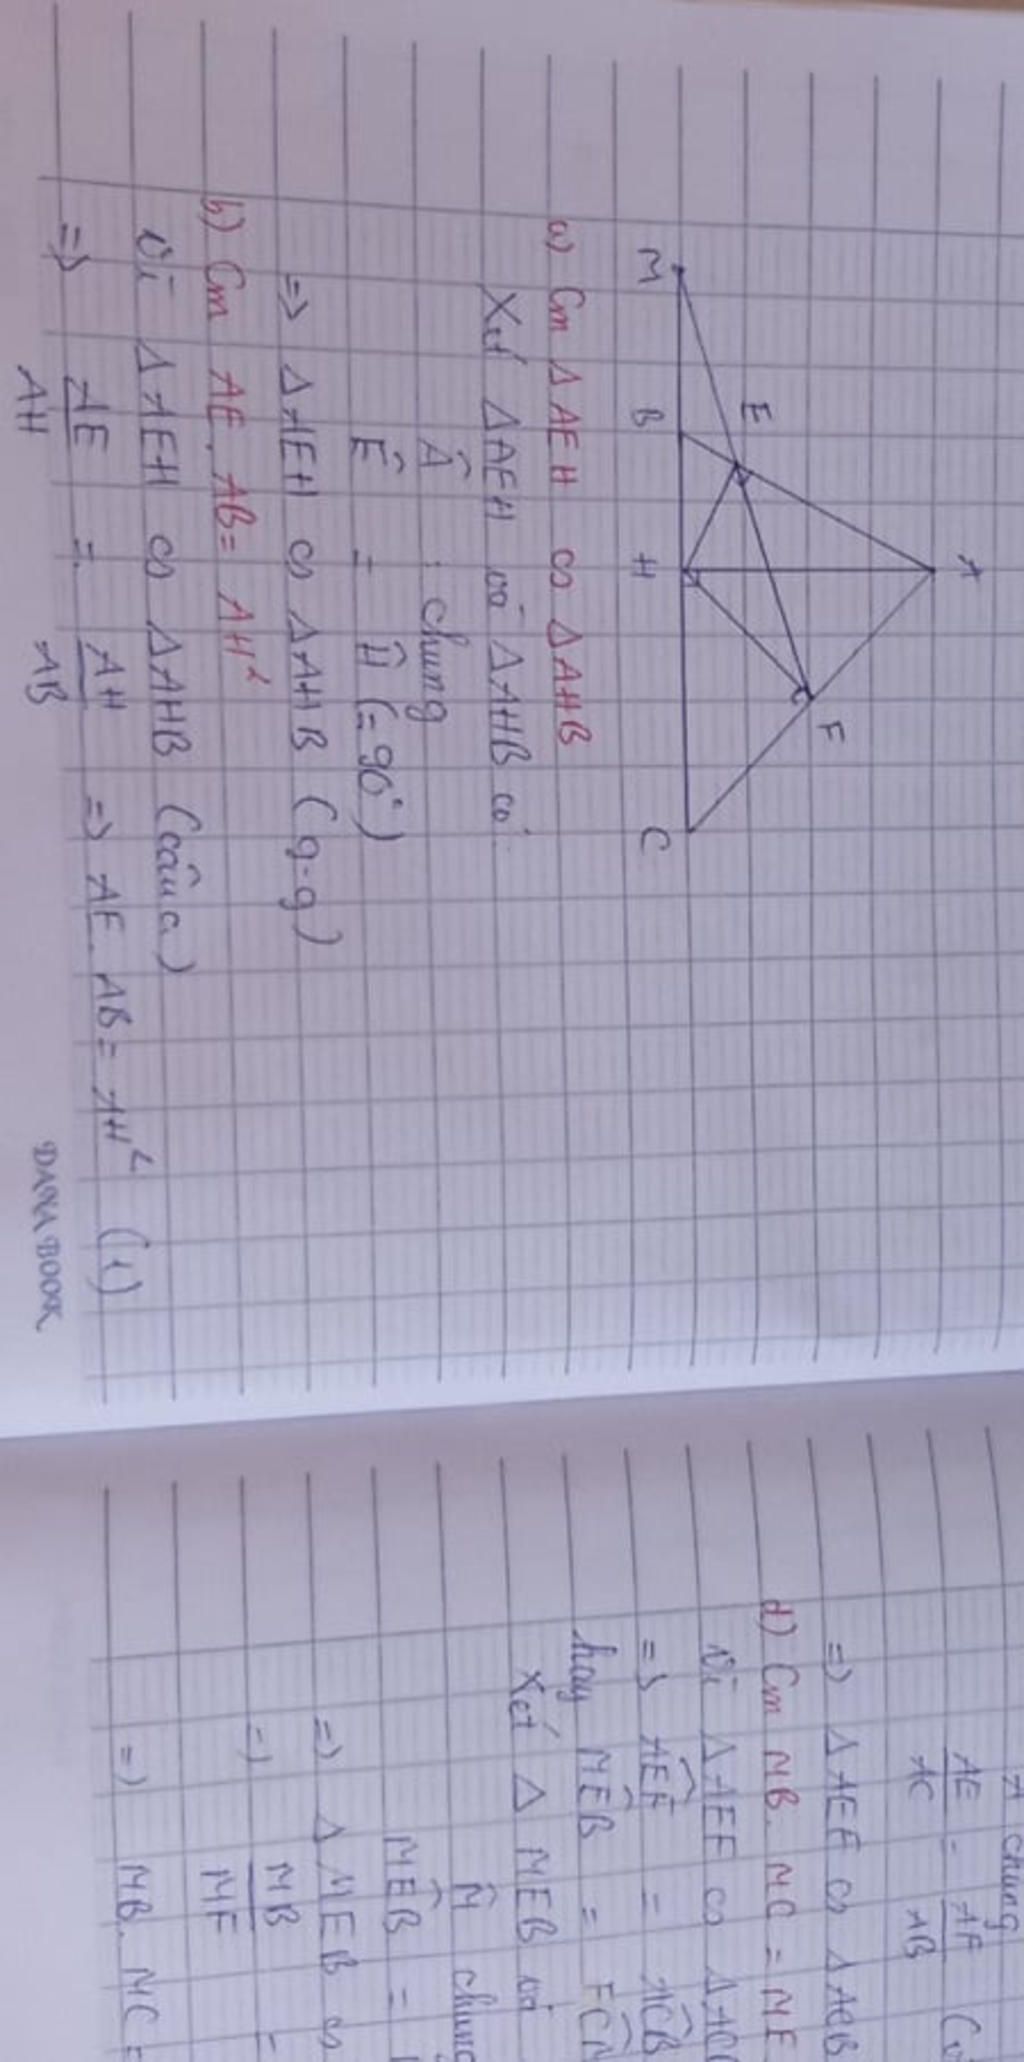 A
E
F
M B H C
a) Cm Δ AEH ∽ Δ AHB
Xét ΔAEH và ΔAHB có:
Â : chung
Ê = Ĥ (= 90°)
=> Δ AEH ∽ Δ AHB (g.g)
b) Cm AE. AB = AH²
Vì Δ AEH ∽ Δ AHB (câu a)
=> AE/AH = AH/AB => AE. AB = AH² (1)
DANA BOOK
Â chung
AE/AC = AF/AB
=> Δ AEF ∽ Δ ACB
d) Cm MB. MC = ME
Vì Δ AEF ∽
=> AEF^ = ACB^
hay MEB^ =
Xét Δ MEB và
M̂ chung
MEB^ =
=> Δ MEB ∽
=> MB/MF =
=> MB. MC =